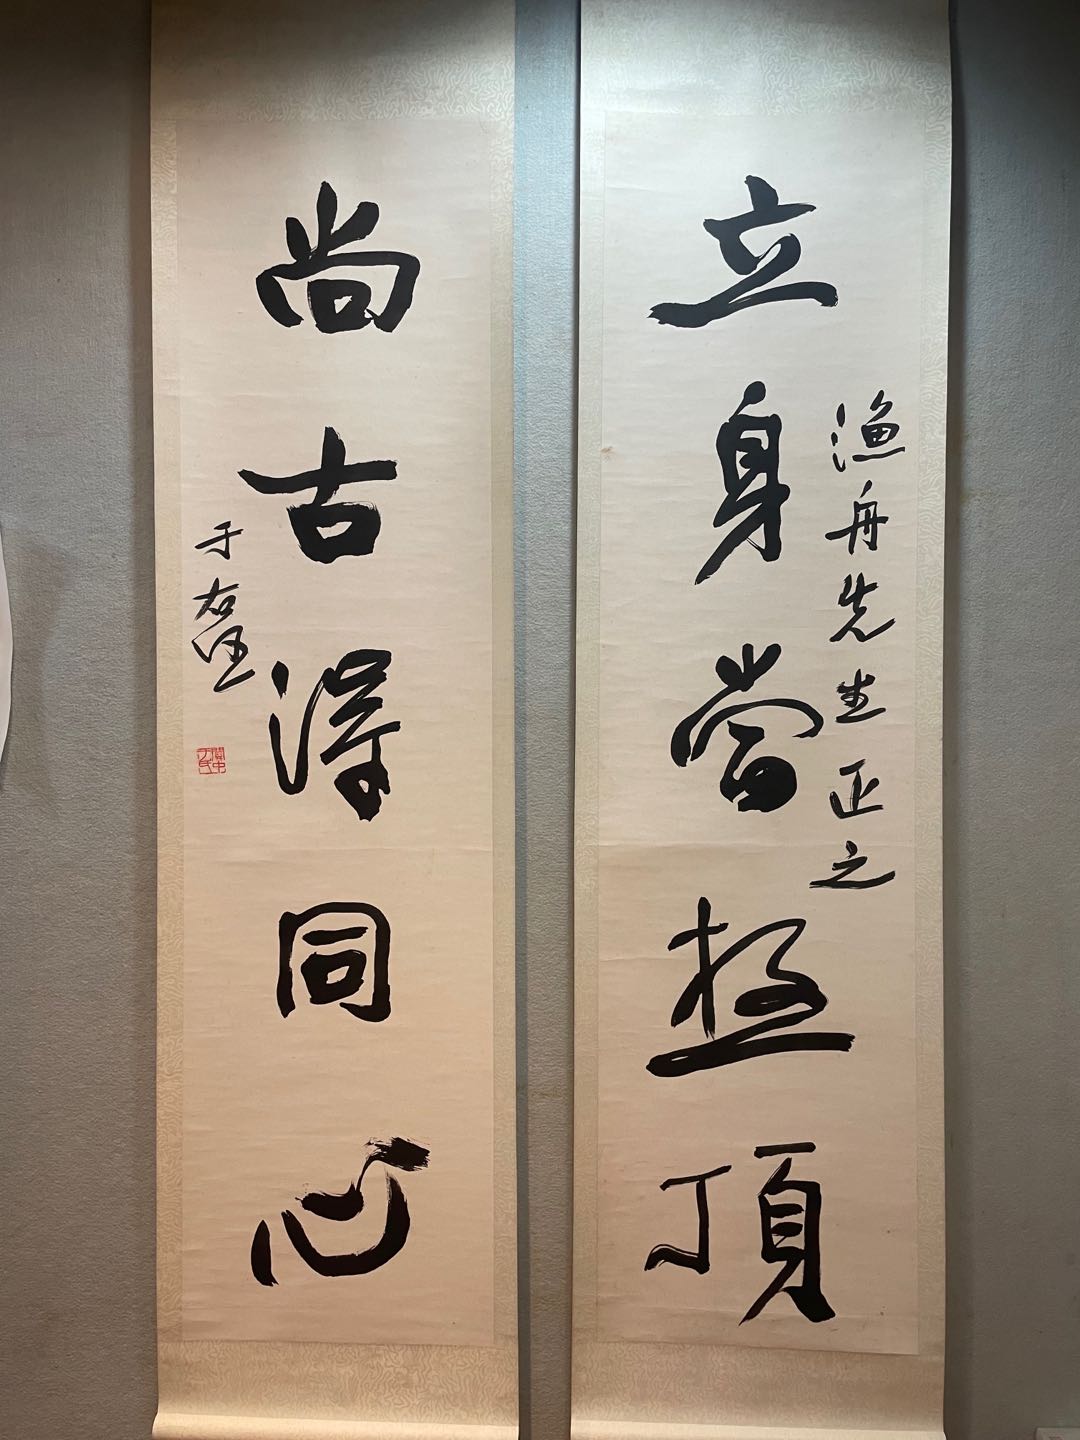 立身當極頂
漁舟先生正之
尚古得同心
于右任
關中于氏